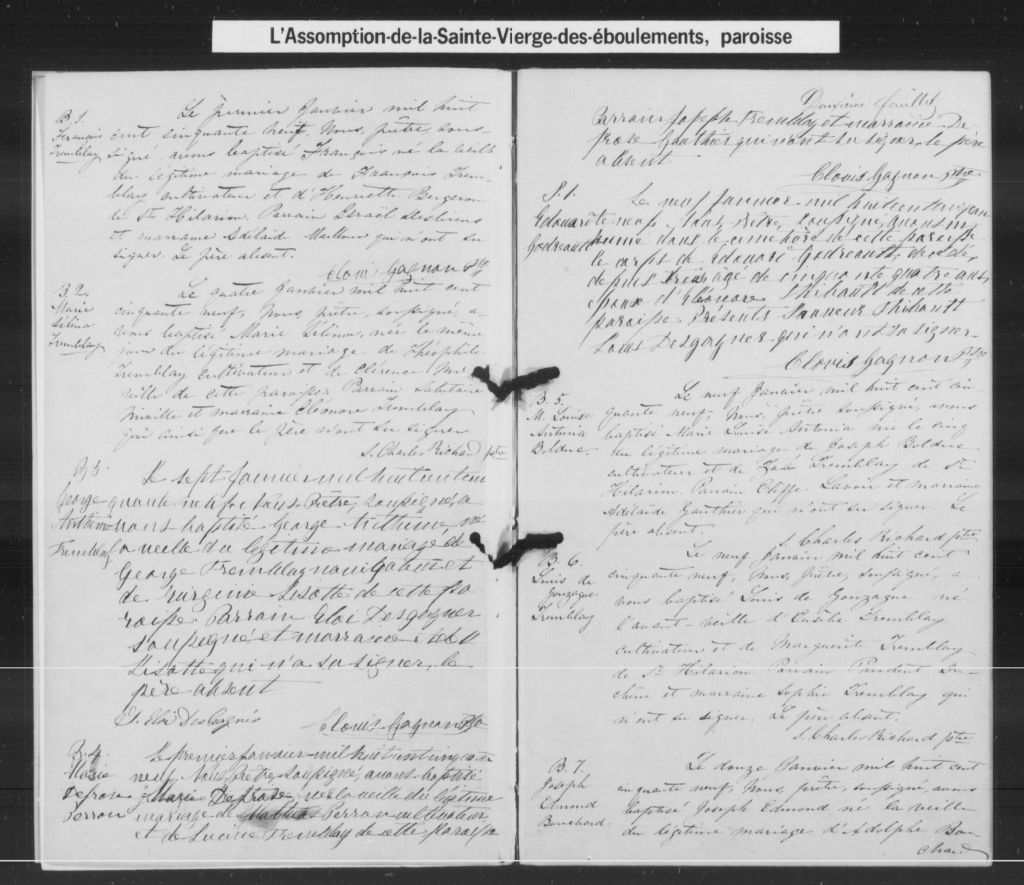 L'Assomption-de-la-Sainte-Vierge-des-éboulements, paroisse
B. 1.
François
Tremblay
Le premier Janvier mil huit
cent cinquante neuf, Nous, prêtre, sous
signé, avons baptisé François né la veille
du légitime mariage de François Trem-
blay cultivateur et d'Henriette Bergeron
de St Hilarion. Parrain Israël Desbiens
et marraine Adélaïde Mailloux qui n'ont su
signer. Le père absent.
Clovis Gagnon Ptre
B. 2.
Marie
Tremblay
Le quatre Janvier mil huit cent
cinquante neuf, Nous, prêtre, soussigné, a-
vons baptisé Marie née le même
jour du légitime mariage de Théophile
Tremblay cultivateur et de Clérence Mi-
ville de cette paroisse. Parrain
Miville et marraine Eléonore Tremblay
qui ainsi que le père n'ont su signer
S. Charles Richard ptre
B. 3.
George
Tremblay
Le sept Janvier mil huit cent cin
quante neuf Nous Prêtre, soussigné, a
vons baptisé George né
la veille du légitime mariage de
George Tremblay navigateur et
de Lisotte de cette pa
roisse Parrain Eloi Desgagner
soussigné et marraine
Lisotte qui n'a su signer, le
père absent
Eloi Desgagnés
Clovis Gagnon Ptre
B. 4.
Marie
Perron
Le premier Janvier mil huit cent cinquante
neuf, Nous, Prêtre, soussigné, avons baptisé
Marie née la veille du légitime
mariage de Perron cultivateur
et de Lucine Tremblay de cette paroisse
Deuxième feuillet
Parrain Joseph Tremblay et marraine De
Gauthier qui n'ont su signer, le père
absent
Clovis Gagnon Ptre
S. 1.
Edouard
Godreault
Le neuf Janvier mil huit cent cinquan
te neuf, Nous, Prêtre, soussigné, avons in
humé dans le cimetière de cette paroisse
le corps de Edouard Godreault, décédé,
depuis âgé de cinquante quatre ans,
époux d'Eléonore Thibault de cette
paroisse. Présents Thibault
Louis Desgagner qui n'ont su signer.
Clovis Gagnon Ptre
B. 5.
M. Louise
Antonia
Bolduc
Le neuf Janvier mil huit cent cin
quante neuf, Nous, prêtre soussigné, avons
baptisé Marie Louise Antonia née le cinq
du légitime mariage de Joseph Bolduc
cultivateur et de Zoé Tremblay de St
Hilarion. Parrain Lavoie et marraine
Adélaïde Gauthier qui n'ont su signer. Le
père absent.
S. Charles Richard ptre
B. 6.
Louis de
Gonzague
Tremblay
Le neuf Janvier mil huit cent
cinquante neuf, Nous, prêtre, soussigné, a-
vons baptisé Louis de Gonzague né
l'avant-veille d'Eusèbe Tremblay
cultivateur et de Marguerite Tremblay
de St Hilarion. Parrain Prudent Du-
chêne et marraine Sophie Tremblay qui
n'ont su signer. Le père absent.
S. Charles Richard ptre
B. 7.
Joseph
Edmond
Bouchard
Le douze Janvier mil huit cent
cinquante neuf, Nous, prêtre, soussigné, avons
baptisé Joseph Edmond né la veille
du légitime mariage d'Adolphe Bou
chard